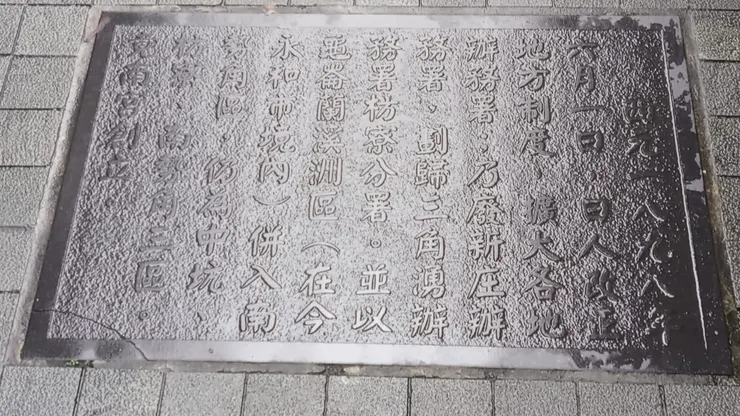 西元一八九八年
六月一日，日人改正
地方制度、擴大各地
辦務署，乃廢新庄辦
務署、劃歸三角湧辦
務署枋寮分署。並以
龜崙蘭溪洲區（在今
永和市境內）併入南
勢角區，仍為中坑、
枋寮、南勢角三區。
南宮創立。